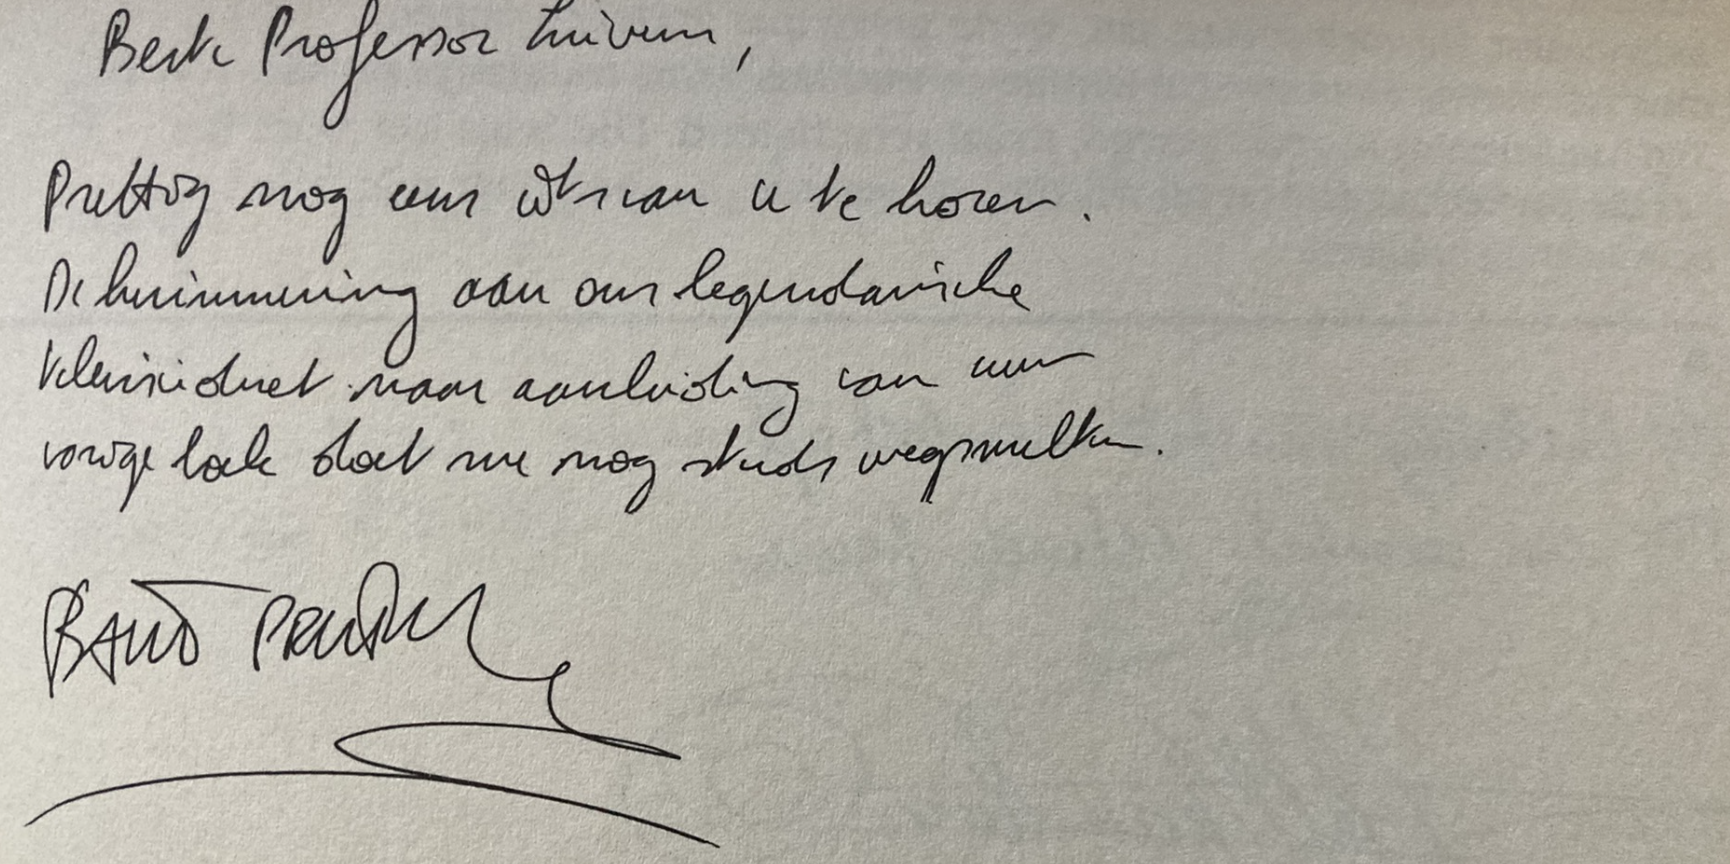 Beste Professor
Prettig nog eens iets van u te horen.
De herinnering aan ons legendarische
klavierduet naar aanleiding van uw
vorige boek doet me nog steeds wegsmelten.